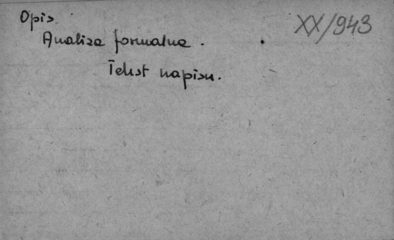 Opis.
XX/943
Analiza formalna.
Tekst napisu.